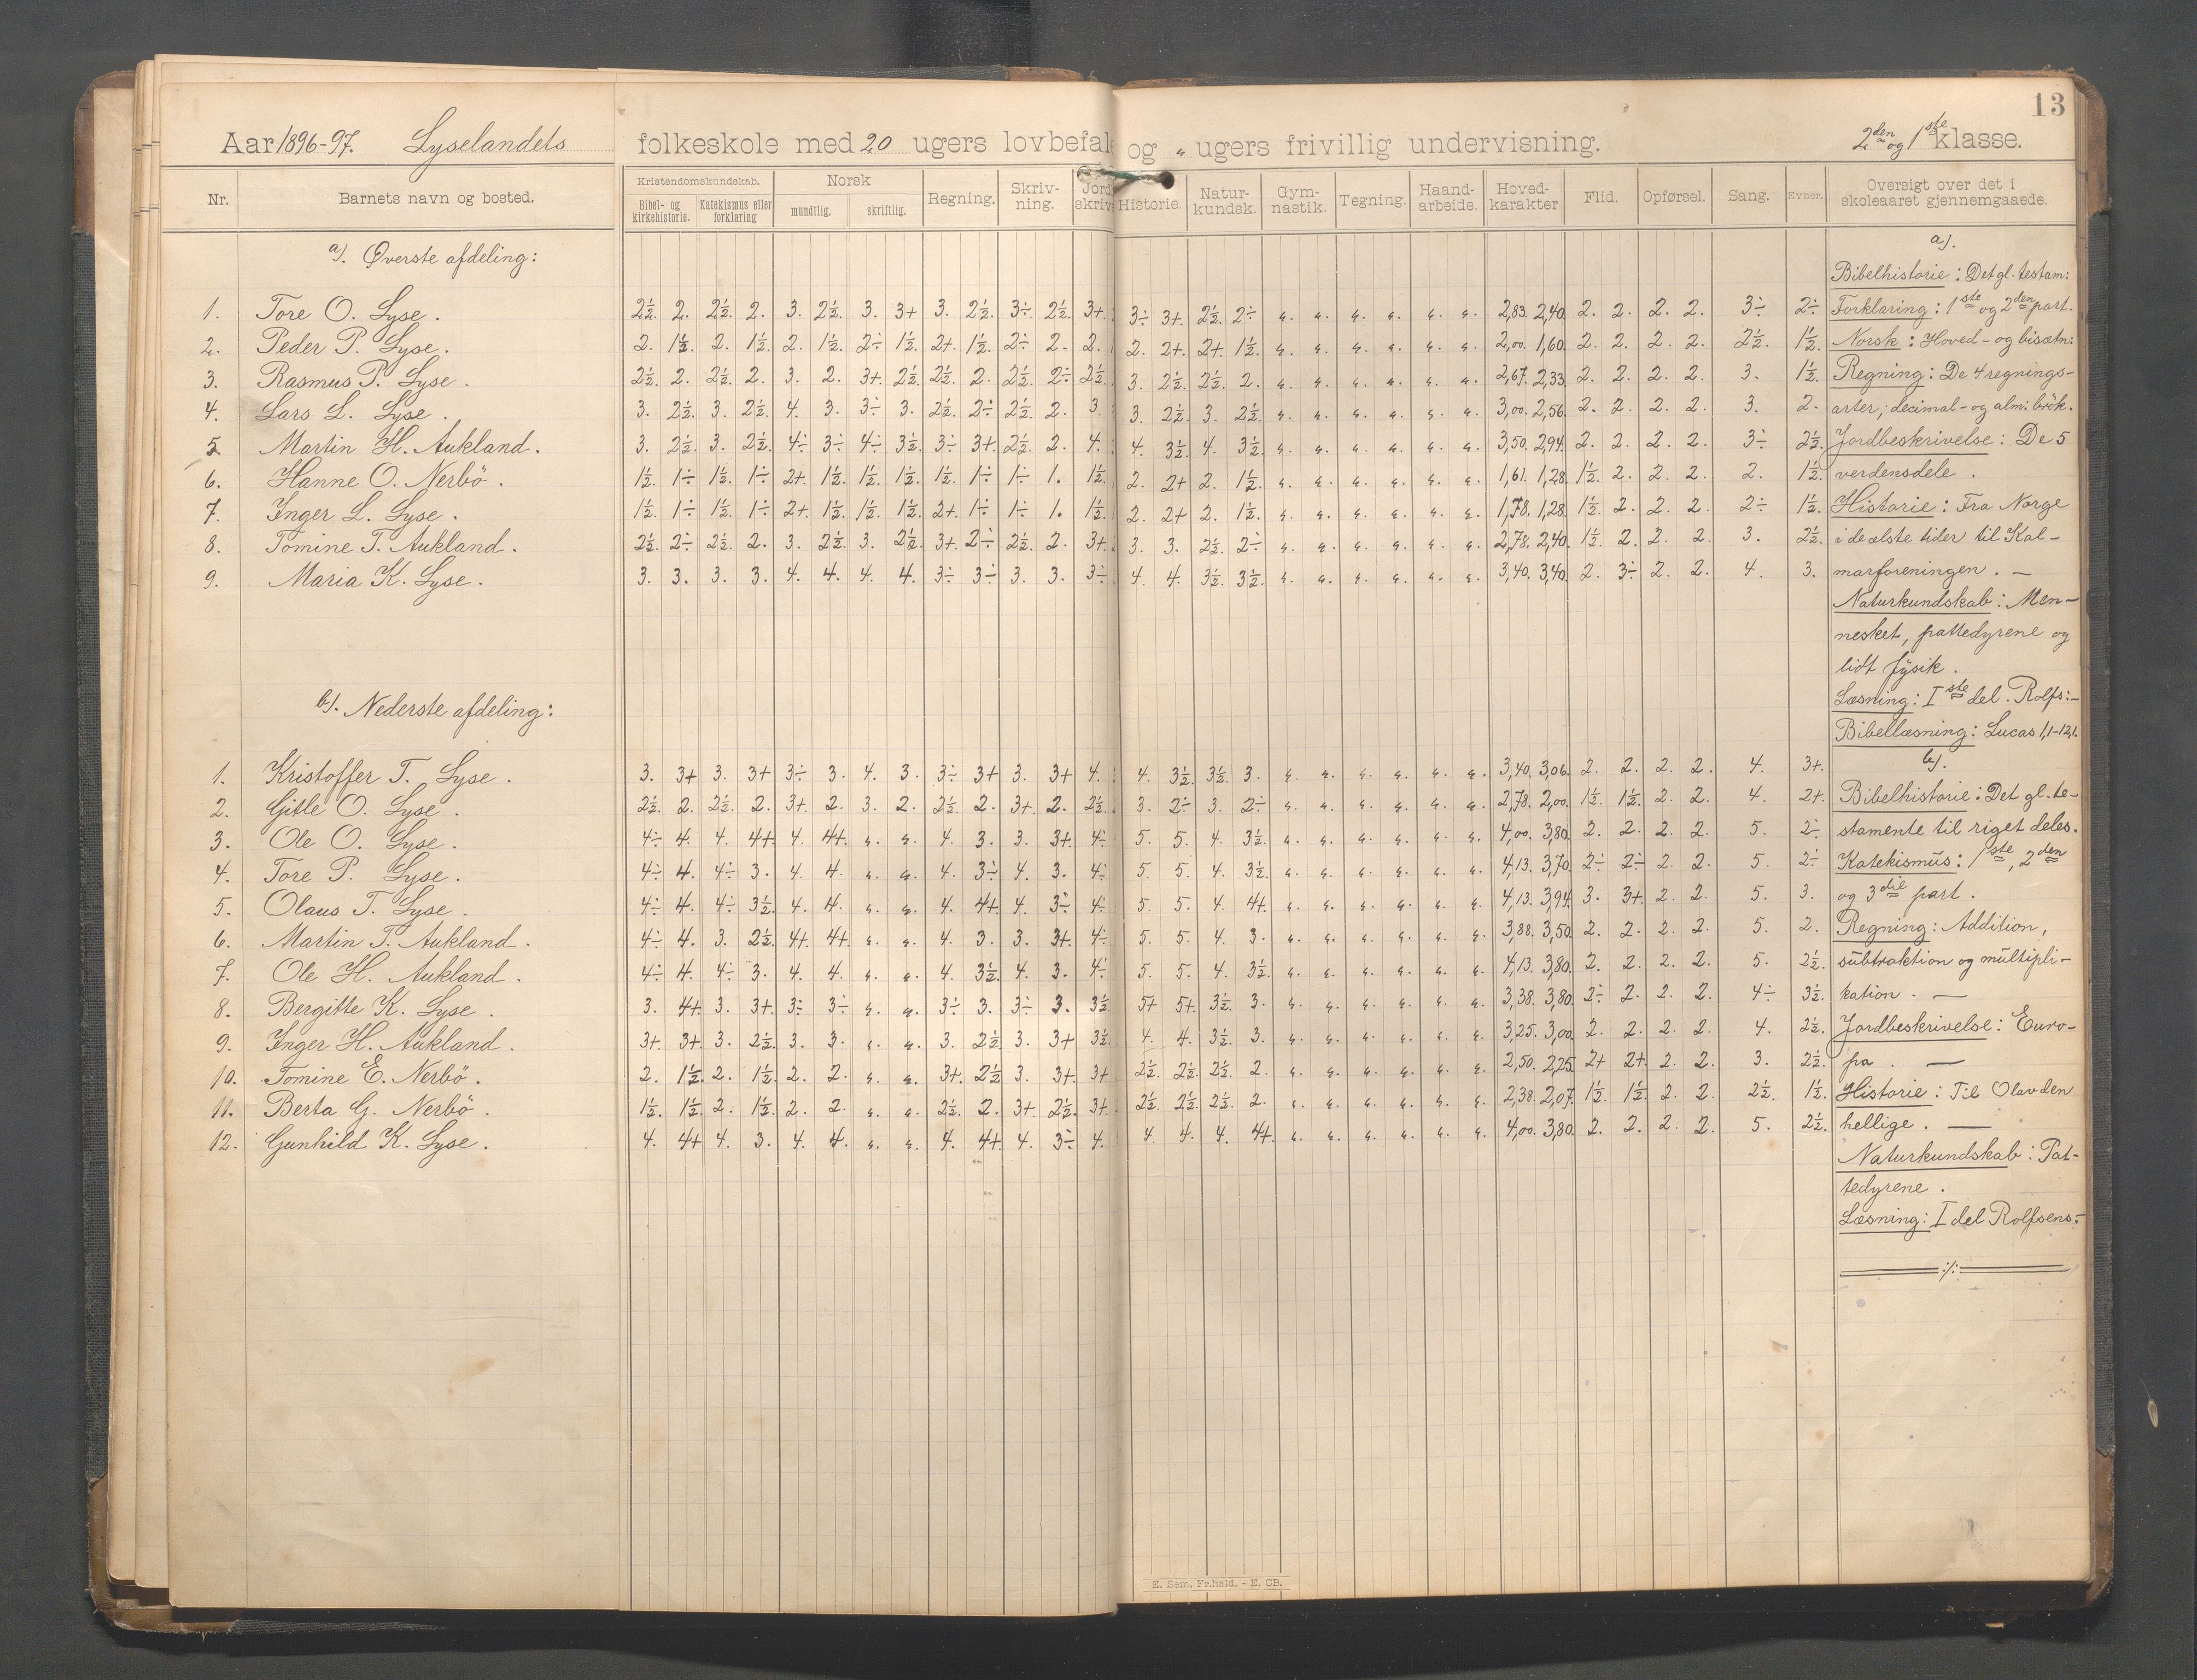 13
Aar 1896-97. Lyselandets folkeskole med 20 ugers lovbefal og " ugers frivillig undervisning. 2den og 1ste klasse.
Nr. Barnets navn og bosted. Kristendomskundskab. Bibel- og kirkehistorie. Katekismus eller forklaring Norsk mundtlig. skriftlig. Regning. Skriv-ning. Jord skriv Historie. Natur-kundsk. Gym-nastik. Tegning. Haand-arbeide. Hoved-karakter Flid. Opførsel. Sang. Evner. Oversigt over det i skoleaaret gjennemgaaede.
a). Øverste afdeling:
1. Tore O. Lyse. 2½. 2. 2½. 2. 3. 2½. 3. 3+ 3. 2½. 3÷ 2½. 3+ 3÷ 3+. 2½. 2÷ " " " " " " 2,83. 2,40. 2. 2. 2. 2. 3÷ 2÷
2. Peder P. Lyse. 2. 1½. 2. 1½. 2. 1½. 2÷ 1½. 2+. 1½. 2÷ 2. 2. 2. 2+. 2+. 1½. " " " " " " 2,00. 1,60. 2. 2. 2. 2. 2½. 1½.
3. Rasmus P. Lyse. 2½. 2. 2½. 2. 3. 2. 3+. 2½. 2½. 2. 2½. 2÷ 2½. 3. 2½. 2½. 2. " " " " " " 2,67. 2,33. 2. 2. 2. 2. 3. 1½.
4. Lars L. Lyse. 3. 2½. 3. 2½. 4. 3. 3÷ 3. 2½. 2÷ 2½. 2. 3. 3. 2½. 3. 2½. " " " " " " 3,00. 2,56. 2. 2. 2. 2. 3. 2.
5 Martin H. Aukland. 3. 2½. 3. 2½. 4÷ 3÷ 4÷ 3½. 3÷ 3+. 2½. 2. 4. 4. 3½. 4. 3½. " " " " " " 3,50. 2,94. 2. 2. 2. 2. 3÷ 2½.
6. Hanne O. Nerbö. 1½. 1÷ 1½. 1÷ 2+. 1½. 1½. 1½. 1½. 1÷ 1÷ 1. 1½. 2. 2+ 2. 1½. " " " " " " 1,61. 1,28. 1½. 2. 2. 2. 2. 1½.
7. Inger L. Lyse. 1½. 1÷ 1½. 1÷ 2+. 1½. 1½. 1½. 2+. 1÷ 1÷ 1. 1½. 2. 2+ 2. 1½. " " " " " " 1,78. 1,28. 1½. 2. 2. 2. 2÷ 1½.
8. Tomine T. Aukland. 2½. 2÷ 2½. 2. 3. 2½. 3. 2½. 3+. 2÷ 2½. 2. 3+. 3. 3. 2½. 2÷ " " " " " " 2,78. 2,40. 1½. 2. 2. 2. 3. 2½.
9. Maria K. Lyse. 3. 3. 3. 3. 4. 4. 4. 4. 3÷ 3÷ 3. 3. 3÷ 4. 4. 3½. 3½. " " " " " " 3,40. 3,40. 2. 3÷ 2. 2. 4. 3.
b). Nederste afdeling:
1. Kristoffer T. Lyse. 3. 3+ 3. 3+ 3÷ 3. 4. 3. 3÷ 3+ 3. 3+ 4. 4. 3½. 3½. 3. " " " " " " 3,40. 3,06. 2. 2. 2. 2. 4. 3+.
2. Gitle O. Lyse. 2½. 2. 2½. 2. 3+. 2. 3. 2. 2½. 2. 3+. 2. 2½. 3. 2÷ 3. 2÷ " " " " " " 2,78. 2,00. 1½. 1½. 2. 2. 4. 2+.
3. Ole O. Lyse. 4÷ 4. 4. 4+ 4. 4+. " " 4. 3. 3. 3+. 4÷ 5. 5. 4. 3½. " " " " " " 4,00. 3,80. 2. 2. 2. 2. 5. 2÷
4. Tore P. Lyse. 4÷ 4. 4÷ 3. 4. 4. " " 4. 3÷ 4. 3. 4÷ 5. 5. 4. 3½. " " " " " " 4,13. 3,70. 2÷ 2÷ 2. 2. 5. 2÷
5. Olaus T. Lyse. 4÷ 4. 4÷ 3½. 4. 4. " " 4. 4+. 4. 3÷ 4÷ 5. 5. 4. 4+. " " " " " " 4,13. 3,94. 3. 3+. 2. 2. 5. 3.
6. Martin T. Aukland. 4÷ 4. 3. 2½. 4+ 4+. " " 4. 3. 3. 3+. 4÷ 5. 5. 4. 3. " " " " " " 3,88. 3,50. 2. 2. 2. 2. 5. 2.
7. Ole H. Aukland. 4÷ 4. 4÷ 3. 4. 4. " " 4. 3½. 4. 3. 4÷ 5. 5. 4. 3½. " " " " " " 4,13. 3,80. 2. 2. 2. 2. 5. 2½.
8. Bergitte K. Lyse. 3. 4+. 3. 3+. 3÷ 3÷ " " 3÷ 3. 3÷ 3. 3½. 5+ 5+. 3½. 3. " " " " " " 3,38. 3,80. 2÷ 2. 2. 2. 4÷ 3½.
9. Inger H. Aukland. 3+. 3+. 3. 2½. 3. 3. " " 3. 2½. 3. 3+ 3½. 4. 4. 3½. 3. " " " " " " 3,25. 3,00. 2. 2. 2. 2. 4. 2½.
10. Tomine E. Nerbö. 2. 1½. 2. 1½. 2. 2. " " 3+. 2½ 3. 3+. 3+ 2½. 2½. 2½. 2. " " " " " " 2,50. 2,25. 2+ 2+. 2. 2. 3. 2½.
11. Berta G. Nerbö. 1½. 1½. 2. 1½. 2. 2. " " 2½. 2. 3+. 2½. 3+. 2½. 2½. 2½. 2. " " " " " " 2,38. 2,07. 1½. 1½. 2. 2. 2½. 1½.
12. Gunhild K. Lyse. 4. 4+ 4. 3. 4. 4. " " 4. 4+. 4. 3÷ 4. 4. 4. 4. 4+. " " " " " " 4,00. 3,80. 2. 2. 2. 2. 5. 2½.
a).
Bibelhistorie: Det gl. testam:
Forklaring: 1ste og 2den part.
Norsk: Hoved- og bisætn:
Regning: De 4 regnings-
arter; decimal- og alm: brök.
Jordbeskrivelse: De 5
verdensdele.
Historie: Fra Norge
i de ælste tider til Kal-
marforeningen. —
Naturkundskab: Men-
nesket, pattedyrene og
lidt fysik.
Læsning: Iste del. Rolfs:-
Bibellæsning: Lucas 1,1-12,1.
b).
Bibelhistorie: Det gl. te-
stamente til riget deles.
Katekismus: 1ste, 2den
og 3die part.
Regning: Addition,
subtraktion og multipli-
kation. —
Jordbeskrivelse: Euro-
pa. —
Historie: Til Olav den
hellige. —
Naturkundskab: Pat-
tedyrene.
Læsning: I del Rolfsens:-
E. Sem, Fr.hald. - E. CB.